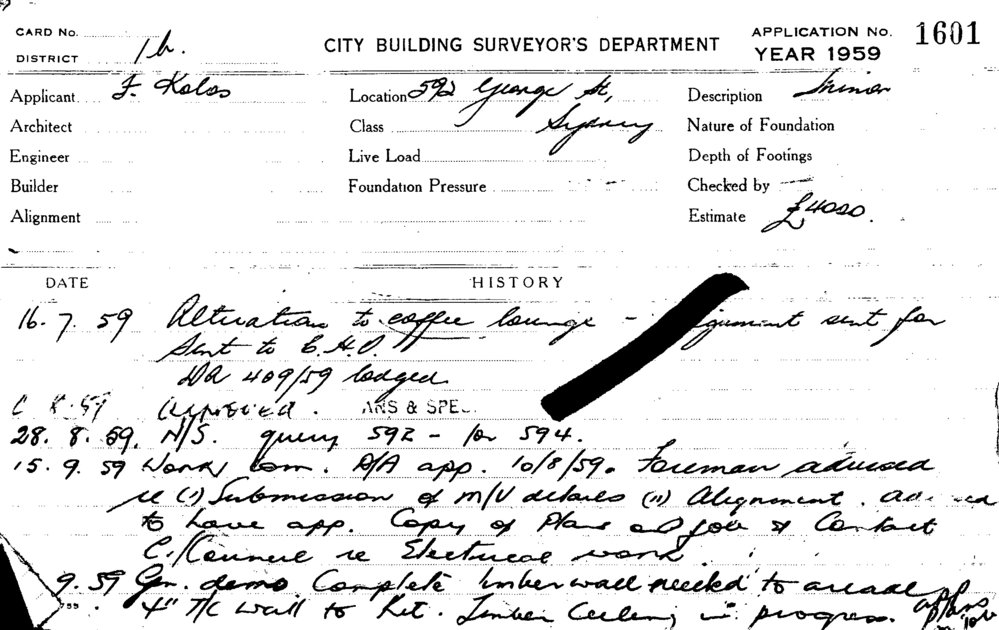 CARD No.
DISTRICT 1b.
CITY BUILDING SURVEYOR'S DEPARTMENT
APPLICATION No. 1601
YEAR 1959
Applicant F. Kolos Location 592 George St, Description Minor
Architect Class Sydney Nature of Foundation
Engineer Live Load Depth of Footings
Builder Foundation Pressure Checked by
Alignment Estimate £4000.
DATE HISTORY
16.7.59 Alteration to coffee lounge - sent for
Sent to E.H.O.
DA 409/59 lodged
ANS & SPE
28.8.59. N/S. query 592 - or 594.
15.9.59 Work com. D/A app. 10/8/59. Foreman advised
re (1) Submission of M/V details (11) Alignment.
to have app. Copy of Plans on job & Contact
C/Council re Electrical work.
9.59 Gen. demo Complete timber wall needed to arcade
4" T/C wall to Kit. Timber Ceiling in progress.